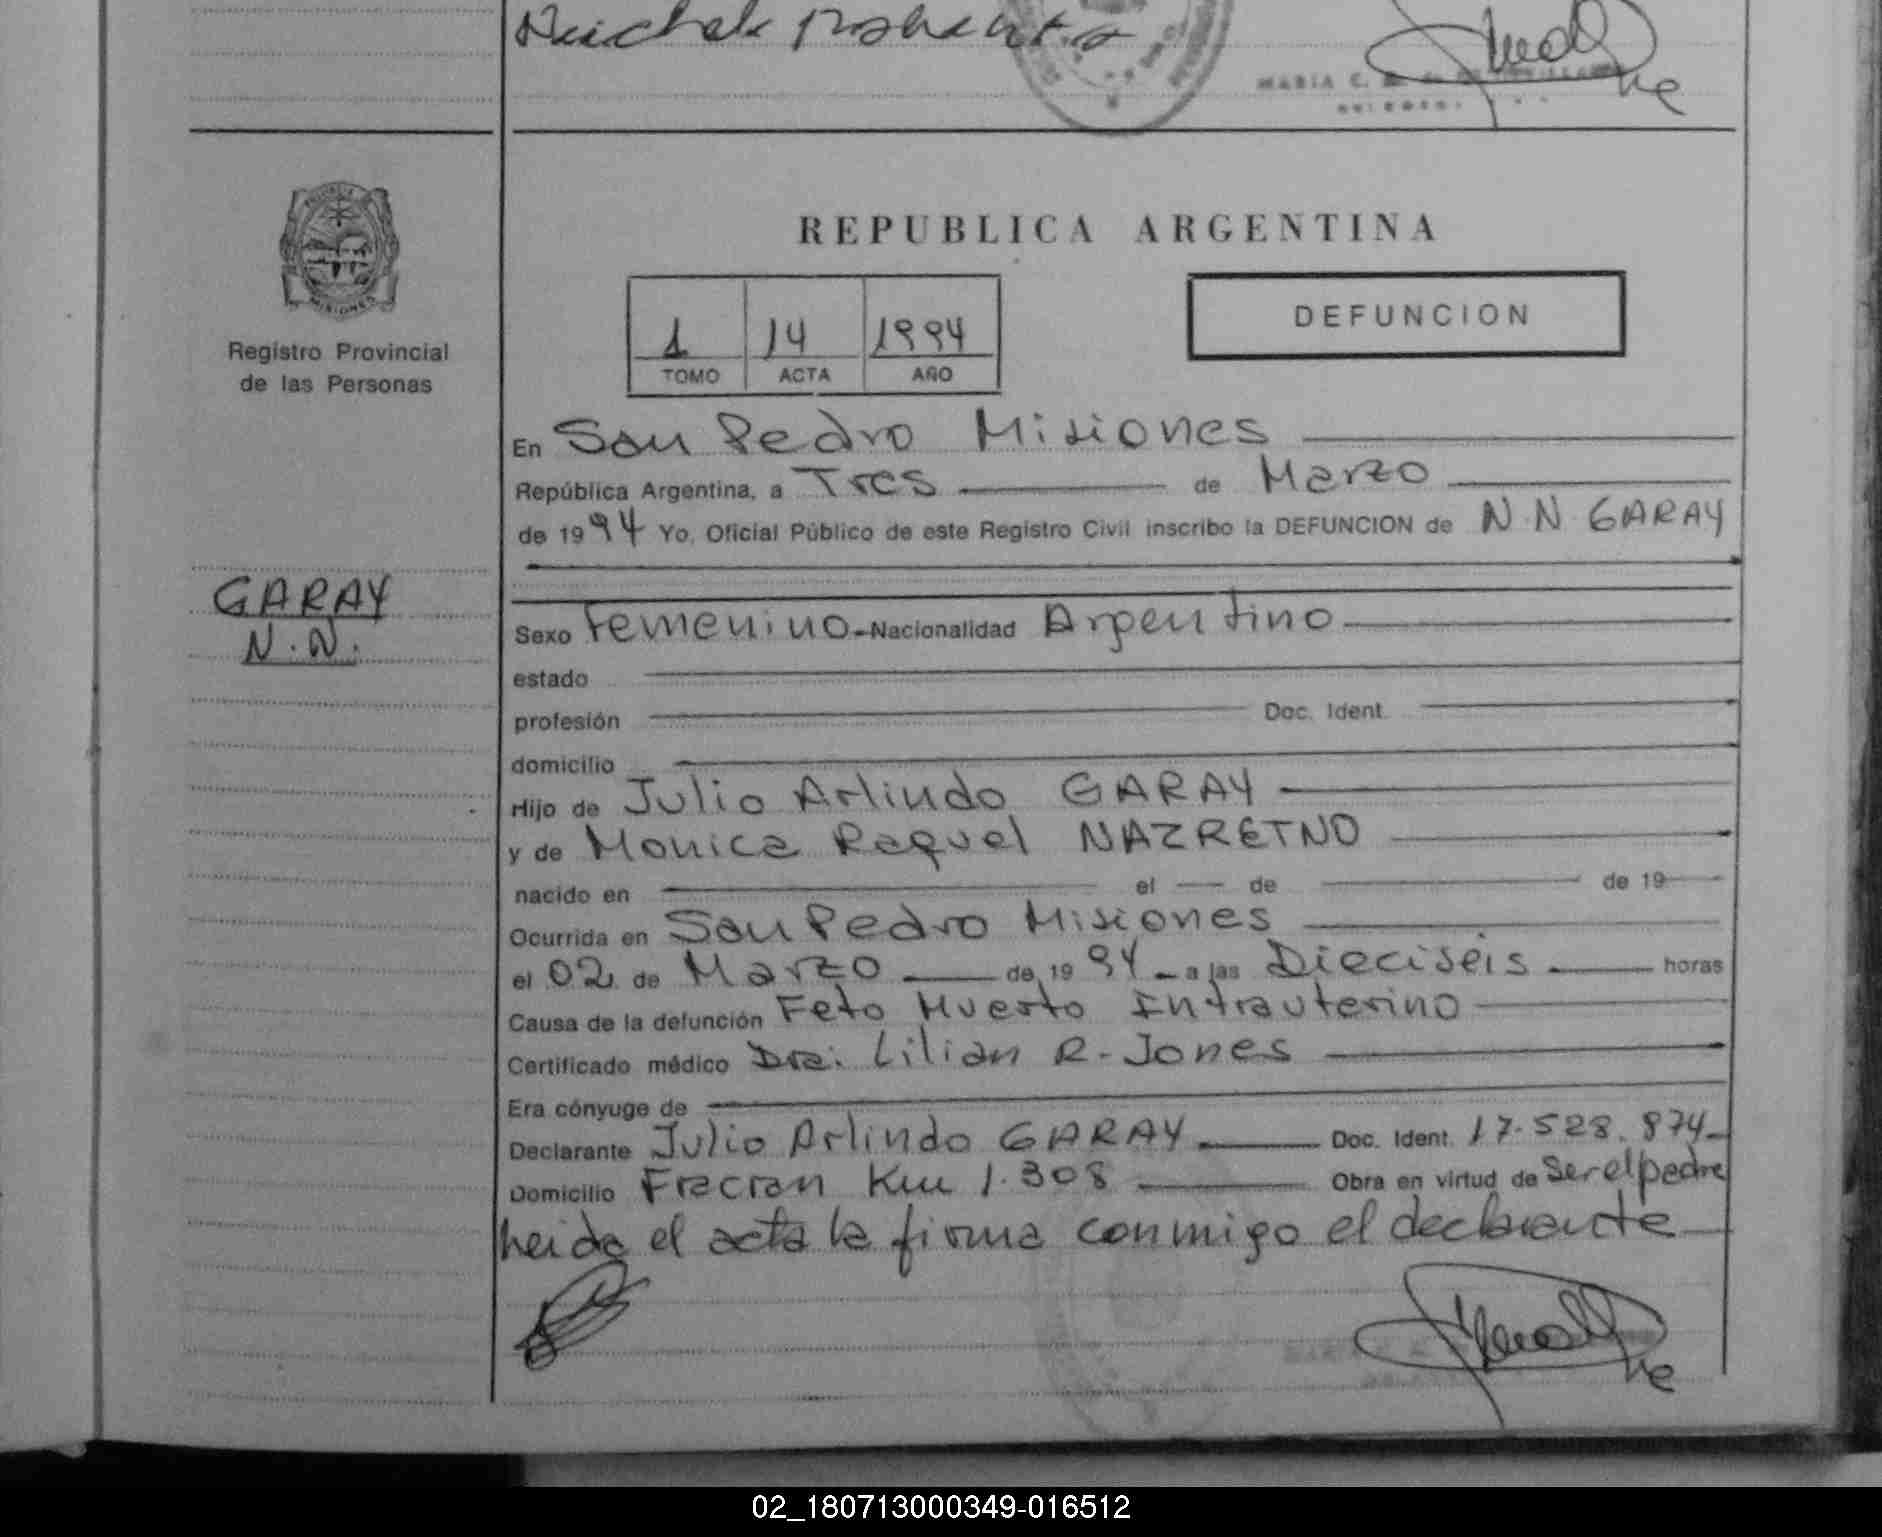 MARIA C.
REPUBLICA ARGENTINA
PROVINCIA
MISIONES
Registro Provincial
de las Personas
1 14 1994
TOMO ACTA AÑO
DEFUNCION
En San Pedro Misiones
República Argentina, a Tres de Marzo
de 1994 Yo, Oficial Público de este Registro Civil inscribo la DEFUNCION de N.N. GARAY
GARAY
N.N.
Sexo Femenino Nacionalidad Argentino
estado
profesión Doc. Ident.
domicilio
Hijo de Julio Arlindo GARAY
y de Monica Raquel NAZRETNO
nacido en el de de 19
Ocurrida en San Pedro Misiones
el 02 de Marzo de 1994 a las Dieciseis horas
Causa de la defunción Feto Muerto Intrauterino
Certificado médico Dra. Lilian R. Jones
Era cónyuge de
Declarante Julio Arlindo GARAY Doc. Ident. 17.528.874
Domicilio Fracran Km 1.308 Obra en virtud de ser el padre
Leida el acta la firma conmigo el declarante
02_180713000349-016512